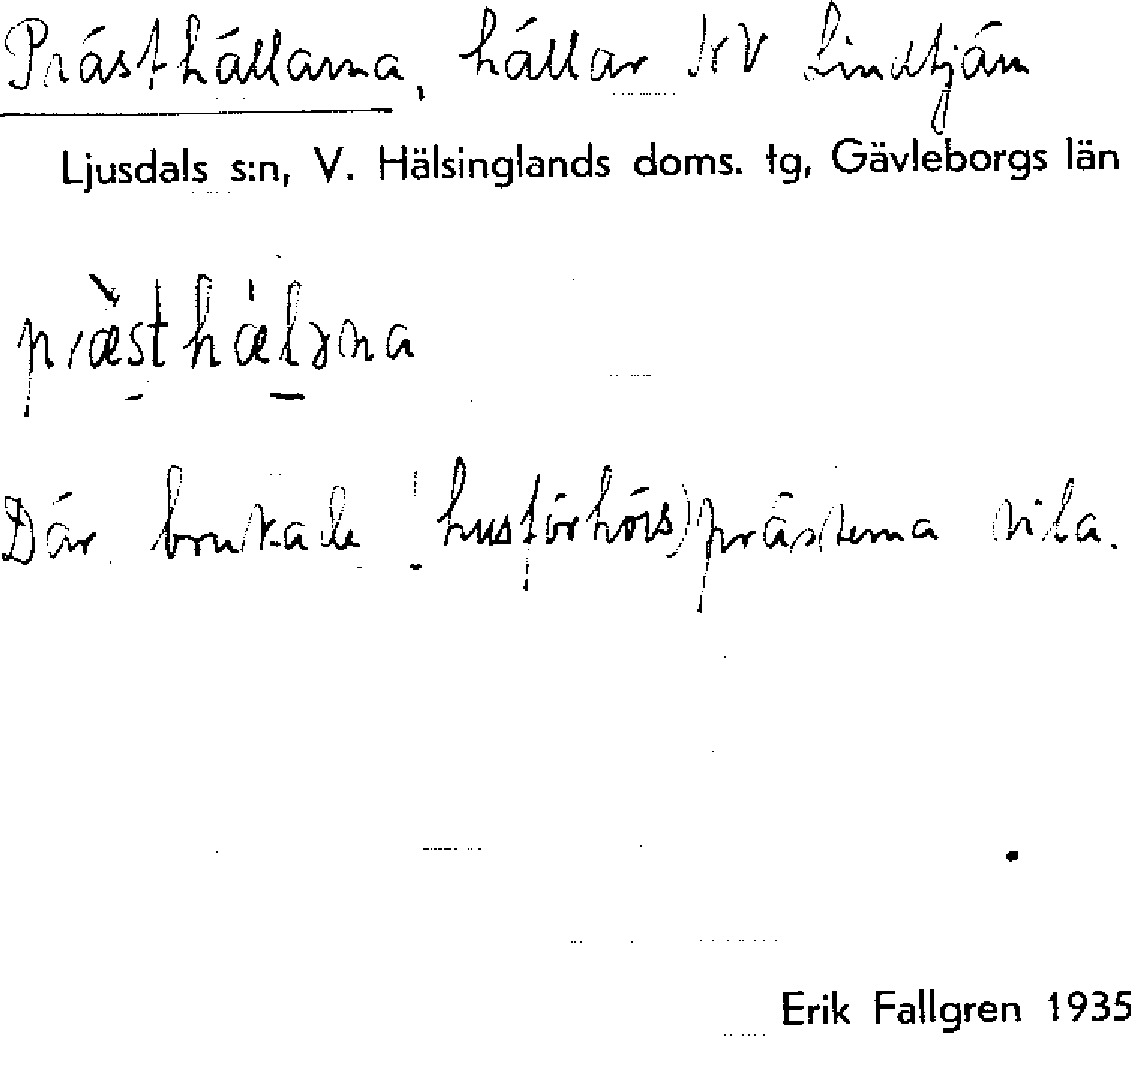 Prästhällarna, hällar NV Lindtjärn
Ljusdals s:n, V. Hälsinglands doms. tg, Gävleborgs län
Där brukade (husförhörs)prästerna vila.
Erik Fallgren 1935